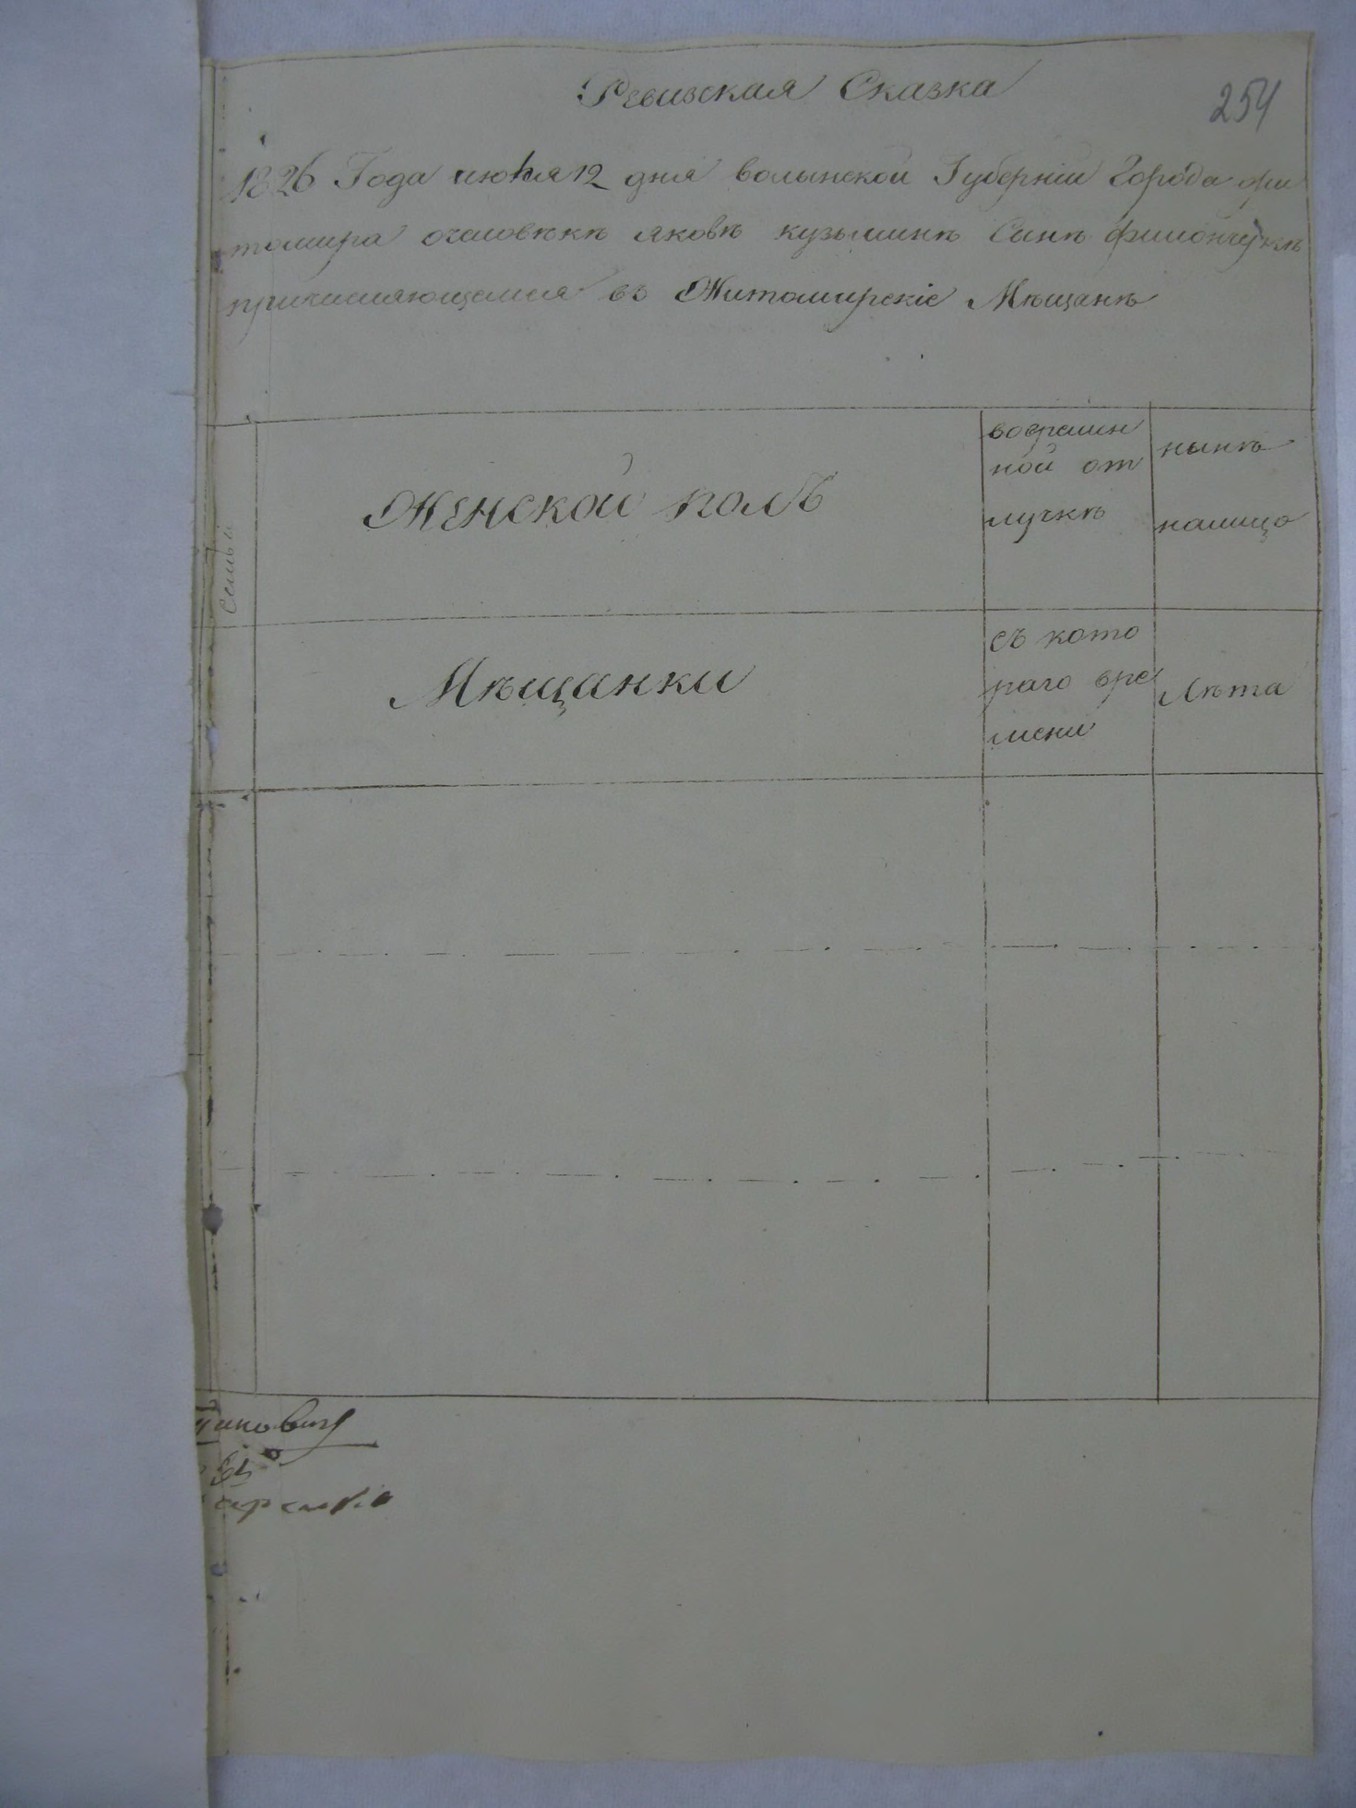 Ревизская Сказка
254
1826 Года июня 12 дня волынской Губерніи Города жи
томира очеловѣкѣ яковѣ кузьминѣ Сынѣ филончукѣ
причисляющемся въ Житомирскіе Мѣщанѣ
Семьи
Женской полъ
вовремян
ной от
лучкѣ
нынѣ
налицо
Мѣщанки
съ кото
раго вре
мени
Лѣта